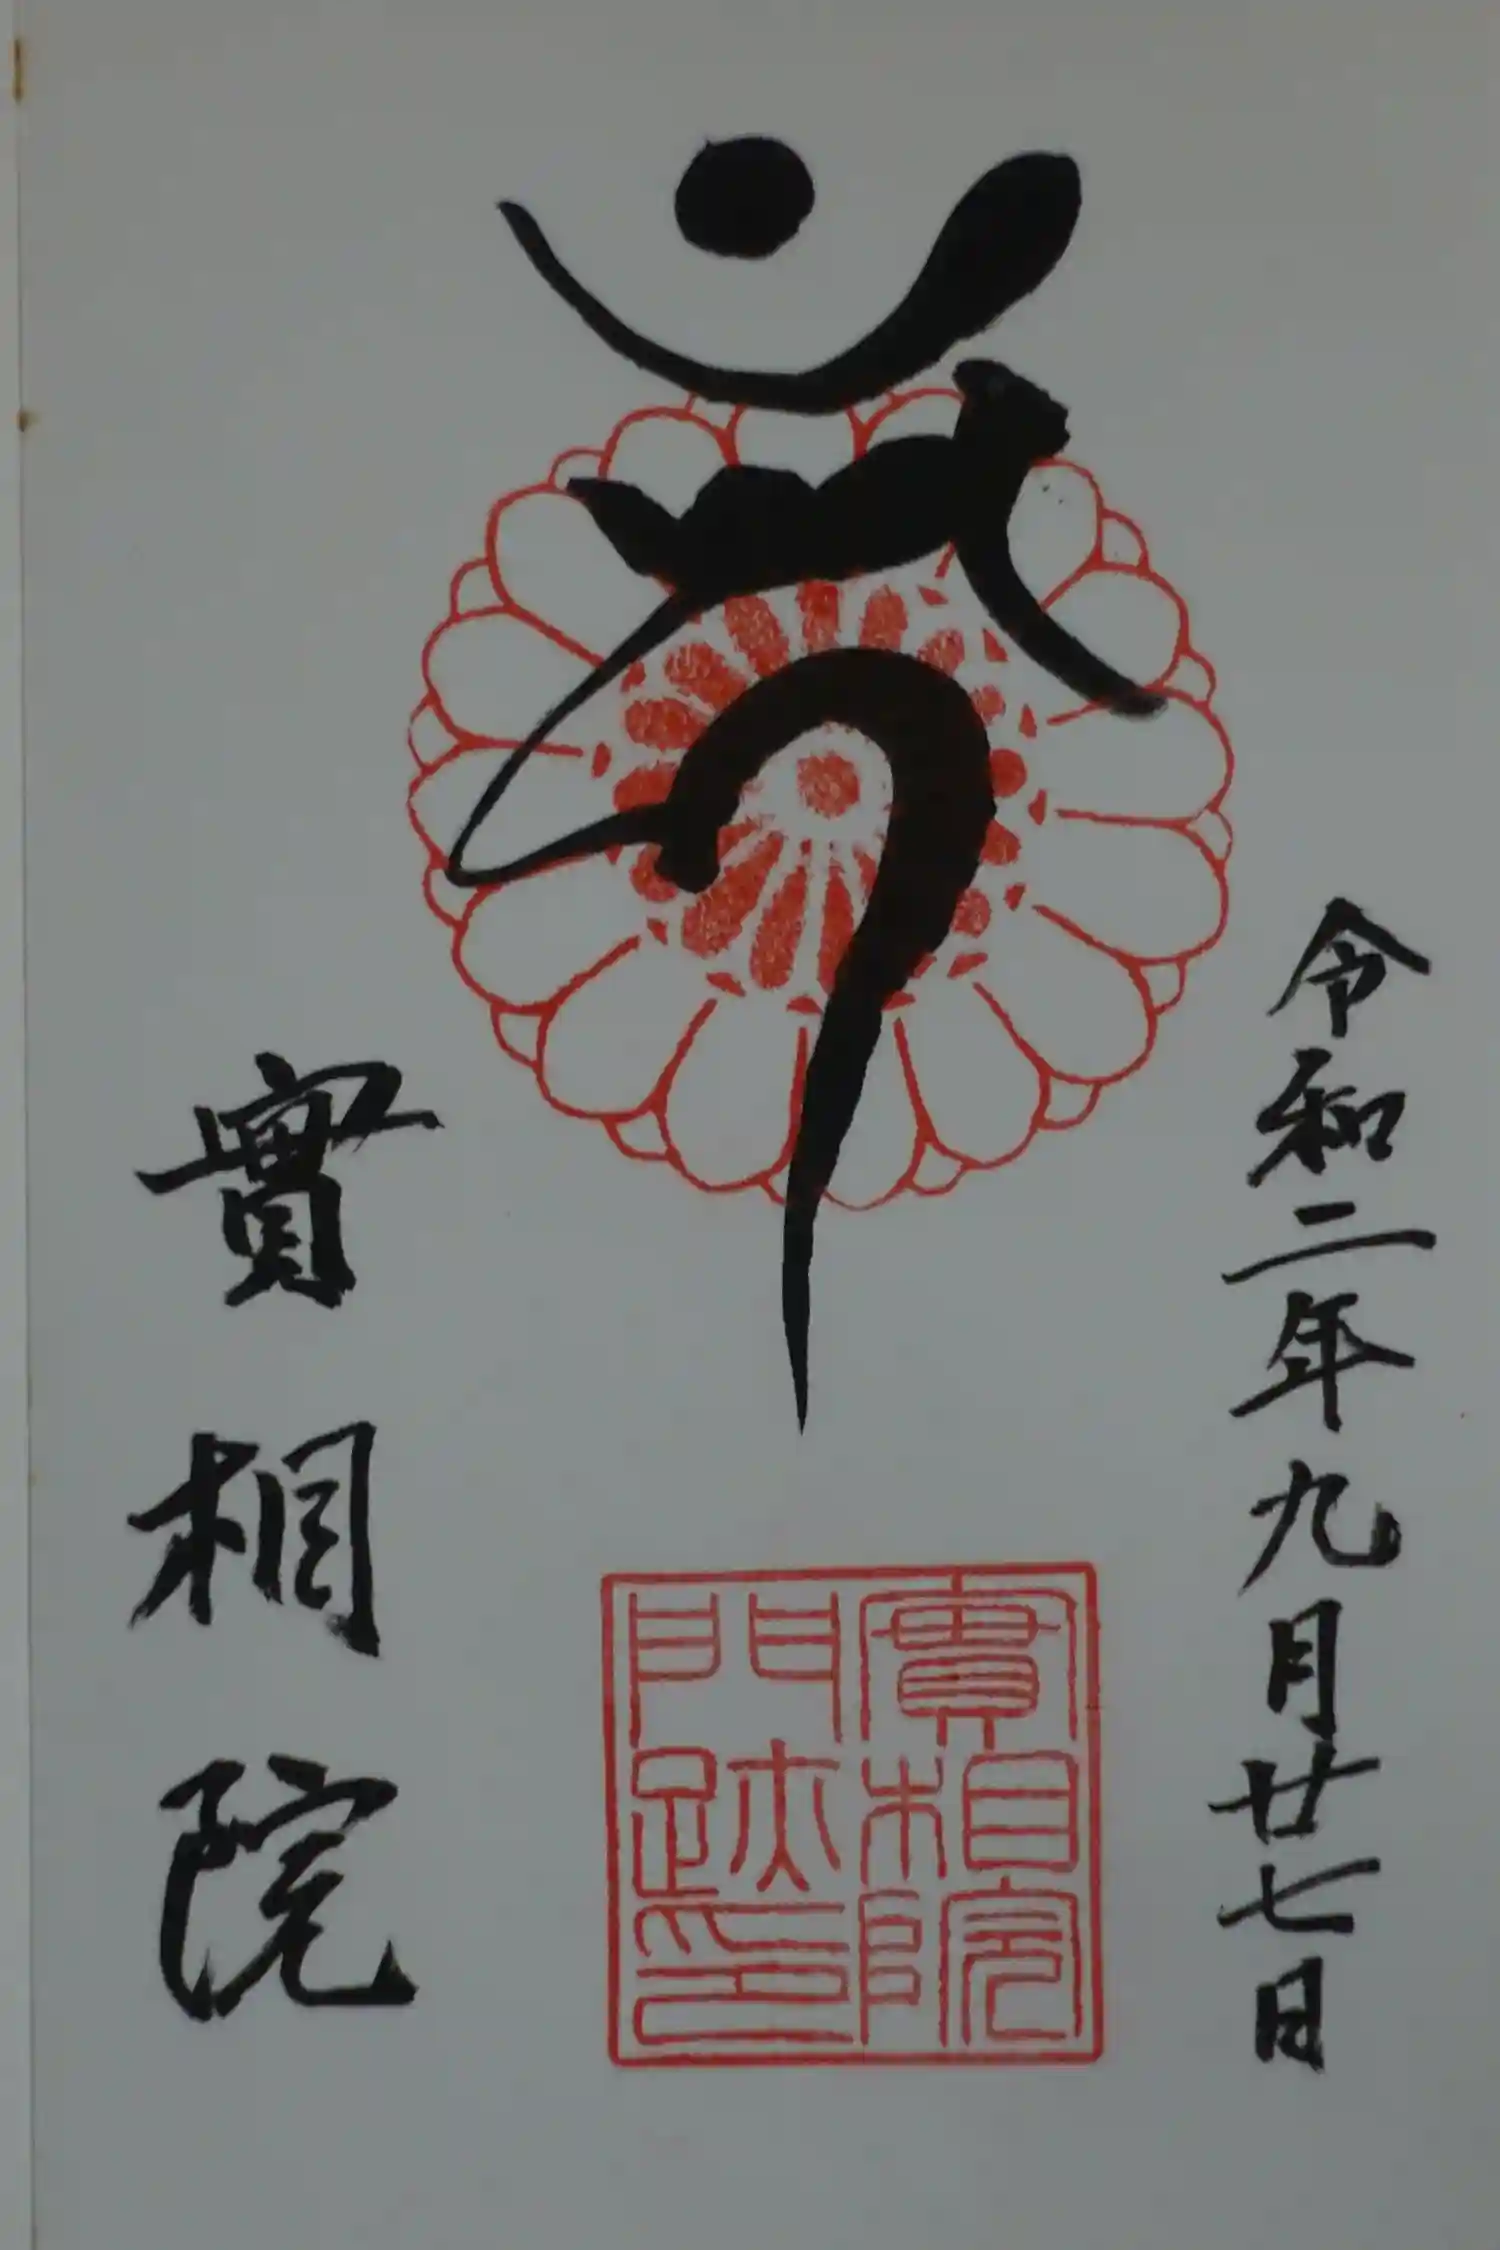 令和二年九月廿七日
𑖮𑗝𑖽
實相院
實相院
門跡印